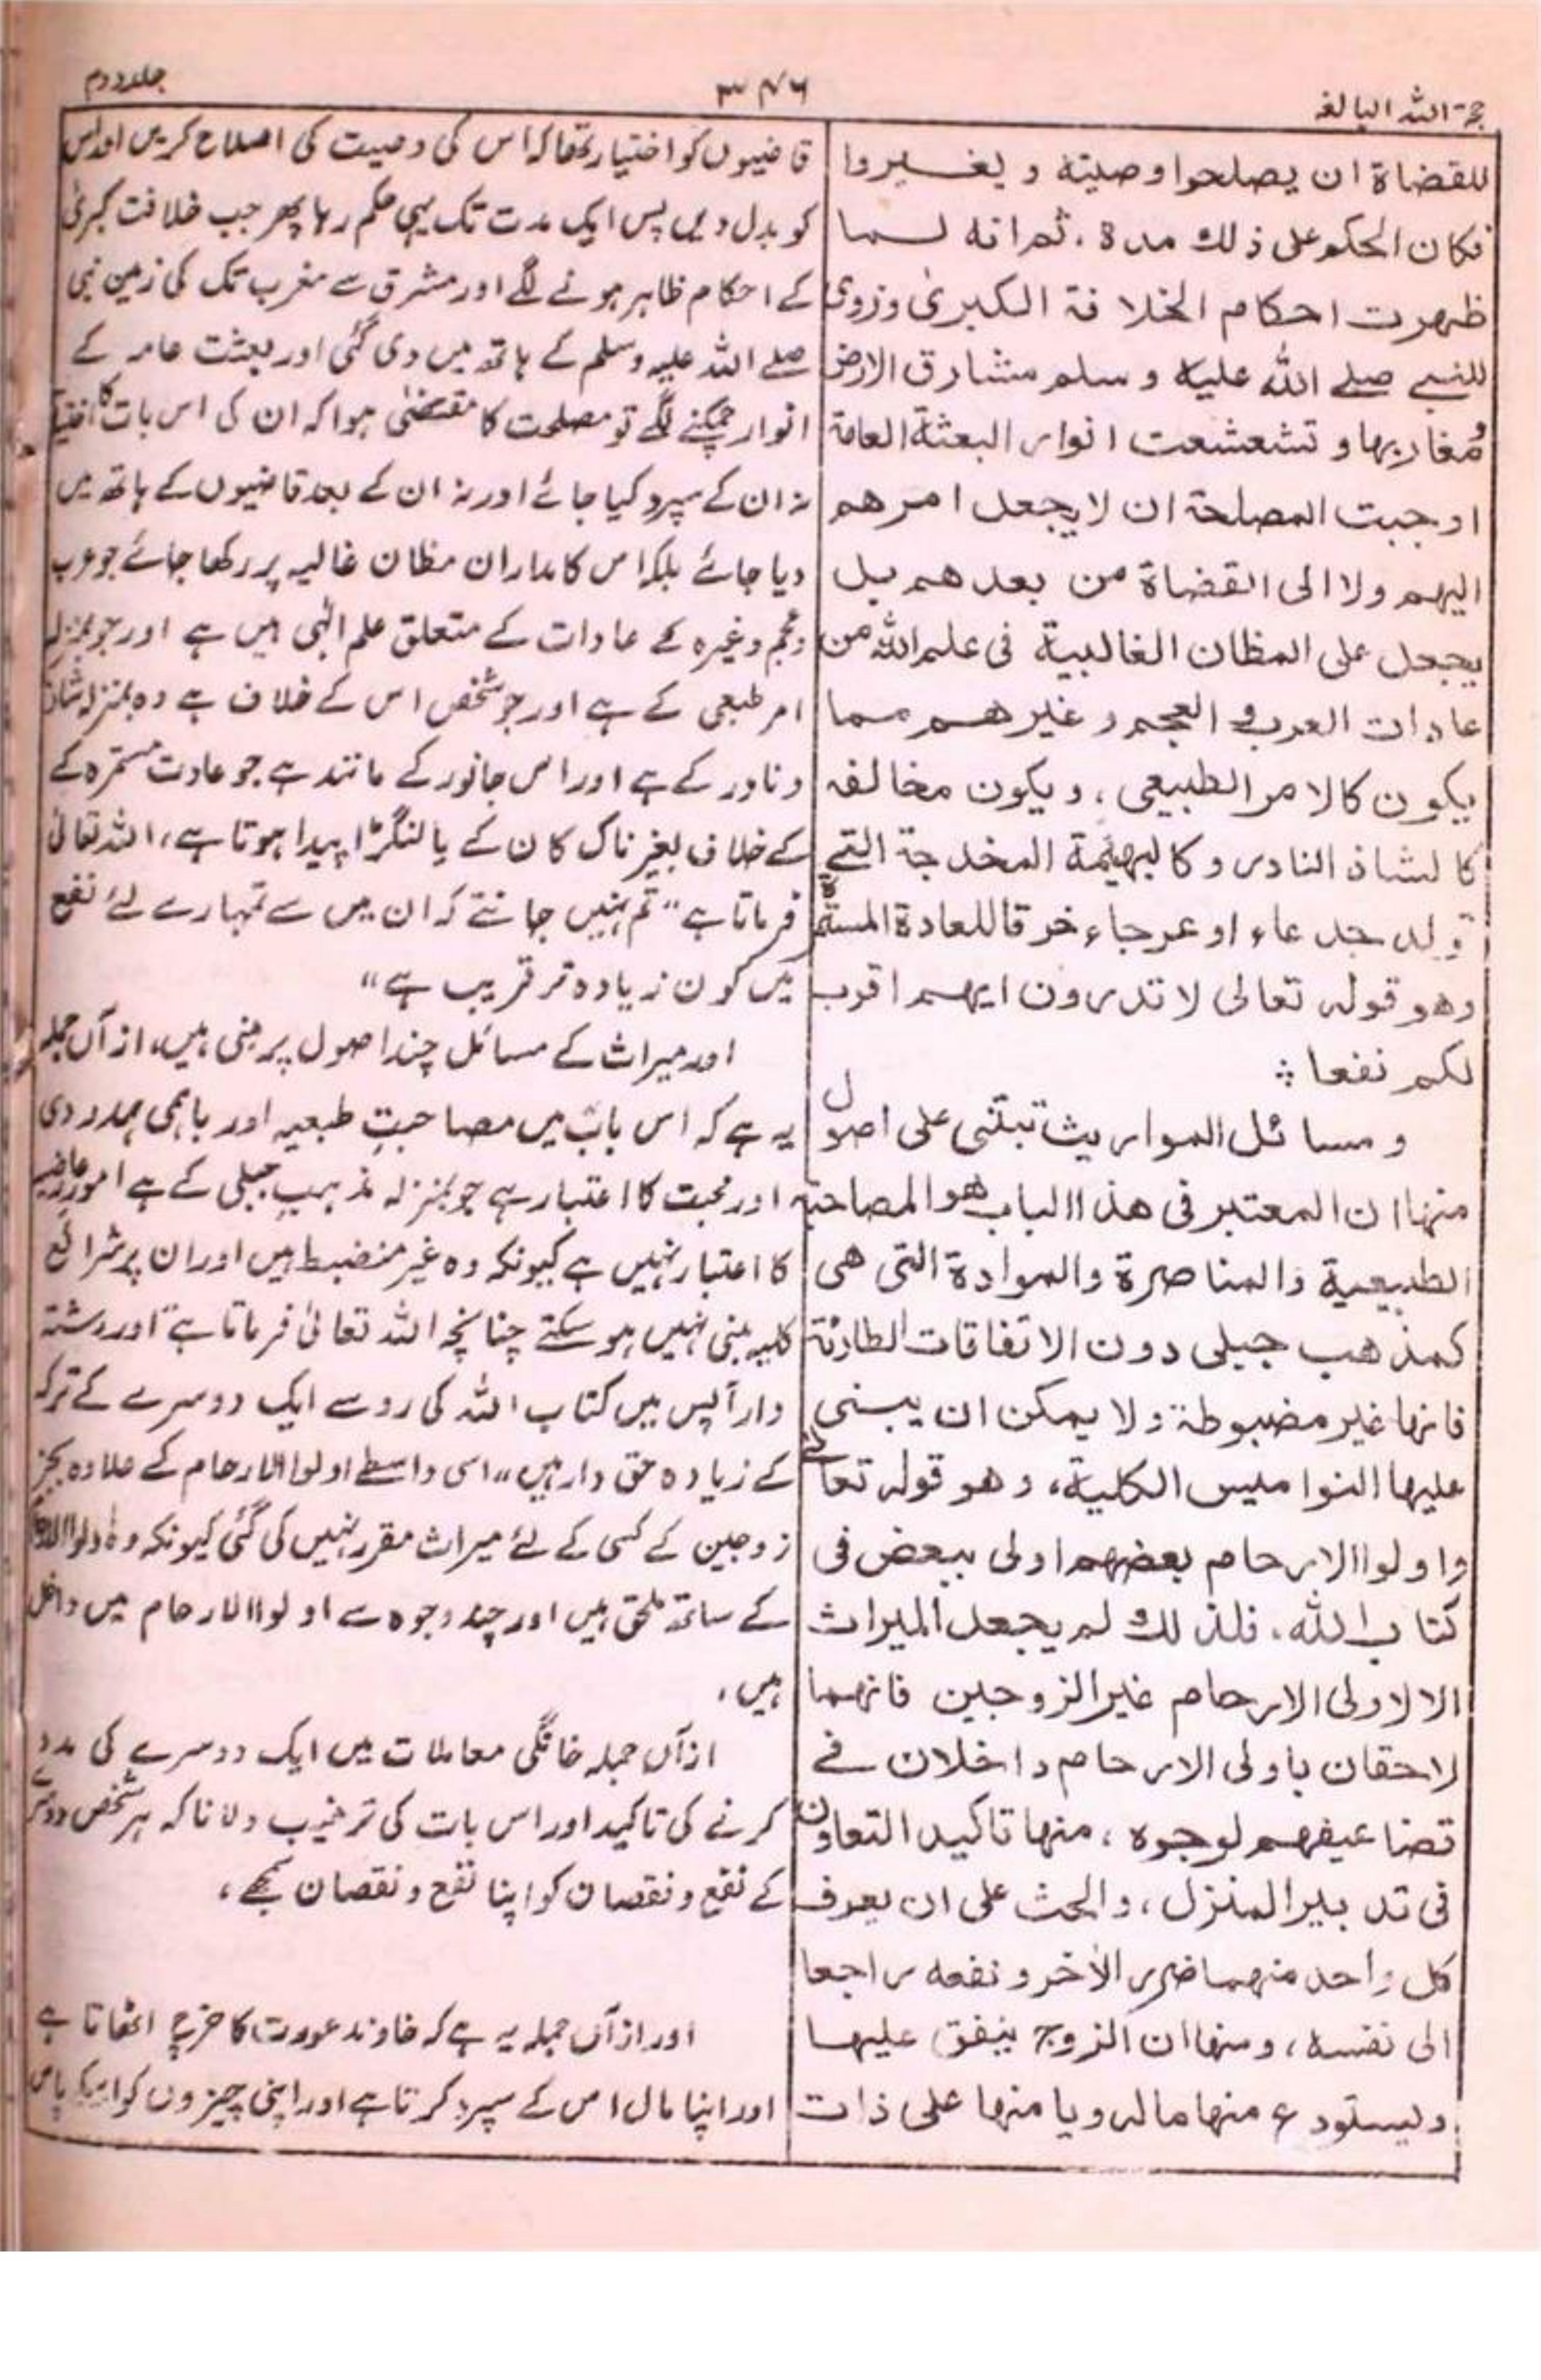 حجۃ اللہ البالغہ
۳۴۶
جلد دوم
للقضاۃ ان یصلحوا وصیتہ و یغیروا
فکان الحکم علی ذلک مدۃ، ثم انہ لما
ظہرت احکام الخلافۃ الکبریٰ وزویٰ
للنبی صلے اللہ علیہ و سلم مشارق الارض
و مغاربہا و تشعشعت انوار البعثۃ العامۃ
اوجبت المصلحۃ ان لا یجعل امرھم
الیہم ولا الی القضاۃ من بعدھم بل
یجعل علی المظان الغالبیۃ فی علم اللہ من
عادات العرب و العجم و غیرھم مما
یکون کالامر الطبیعی، ویکون مخالفہ
کالشاذ النادر و کالبہیمۃ المخدجۃ التے
تولد جدعاء او عرجاء خرقا للعادۃ المستمرۃ
وھو قولہ تعالی لا تدرون ایہم اقرب
لکم نفعا ؞
و مسائل المواریث تبتنی علی اصول
منہا ان المعتبر فی ھذا الباب ھو المصاحبۃ
الطبیعیۃ والمناصرۃ والموادۃ التی ھی
کمذھب جبلی دون الاتفاقات الطارئۃ
فانہا غیر مضبوطۃ ولا یمکن ان یبنی
علیہا النوامیس الکلیۃ، وھو قولہ تعالےٰ
واولوا الارحام بعضہم اولی ببعض فی
کتاب اللہ، فلذلک لم یجعل المیراث
الا لاولی الارحام غیر الزوجین فانہما
لاحقان باولی الارحام داخلان فے
تضاعیفہم لوجوہ، منہا تاکید التعاون
فی تدبیر المنزل، والحث علی ان یعرف
کل واحد منہما ضرر الآخر و نفعہ راجعا
الی نفسہ، و منہا ان الزوج ینفق علیہا
ویستودع منہا مالہ ویامنہا علی ذات
قاضیوں کو اختیار تھا کہ اس کی وصیت کی اصلاح کریں اور اس
کو بدل دیں پس ایک مدت تک یہی حکم رہا پھر جب خلافت کبریٰ
کے احکام ظاہر ہونے لگے اور مشرق سے مغرب تک کی زمین نبی
صلے اللہ علیہ وسلم کے ہاتھ میں دی گئی اور بعثت عامہ کے
انوار چمکنے لگے تو مصلحت کا مقتضیٰ ہوا کہ ان کی اس بات کا
نہ ان کے سپرد کیا جائے اور نہ ان کے بعد قاضیوں کے ہاتھ میں
دیا جائے بلکہ اس کا مدار ان مظان غالبیہ پر رکھا جائے جو عرب
وعجم وغیرہ کے عادات کے متعلق علم الٰہی میں ہے اور جو بمنزلہ
امر طبعی کے ہے اور جو شخص اس کے خلاف ہے وہ بمنزلہ شاذ
ونادر کے ہے اور اس جانور کے مانند ہے جو عادت مستمرہ کے
کے خلاف بغیر ناک کان کے یا لنگڑا پیدا ہوتا ہے، اللہ تعالیٰ
فرماتا ہے "تم نہیں جانتے کہ ان میں سے تمہارے لئے نفع
میں کون زیادہ تر قریب ہے"
اور میراث کے مسائل چند اصول پر مبنی ہیں، از آں جملہ
یہ ہے کہ اس باب میں مصاحبتِ طبعیہ اور باہمی ہمدردی
اور محبت کا اعتبار ہے جو بمنزلہ مذہبِ جبلی کے ہے امورِ عارضیہ
کا اعتبار نہیں ہے کیونکہ وہ غیر منضبط ہیں اور ان پر شرائع
کلیہ مبنی نہیں ہو سکتے چنانچہ اللہ تعالیٰ فرماتا ہے "اور رشتہ
دار آپس میں کتاب اللہ کی رو سے ایک دوسرے کے ترکہ
کے زیادہ حق دار ہیں" اسی واسطے اولوا الارحام کے علاوہ بجز
زوجین کے کسی کے لئے میراث مقرر نہیں کی گئی کیونکہ وہ
کے ساتھ ملحق ہیں اور چند وجوہ سے اولوا الارحام میں داخل
ہیں،
ازآں جملہ خانگی معاملات میں ایک دوسرے کی مدد
کرنے کی تاکید اور اس بات کی ترغیب دلانا کہ ہر شخص دوسرے
کے نفع و نقصان کو اپنا نفع و نقصان سمجھے،
اور ازآں جملہ یہ ہے کہ خاوند عورت کا خرچ اٹھاتا ہے
اور اپنا مال اس کے سپرد کرتا ہے اور اپنی چیزوں کو اسکے پاس